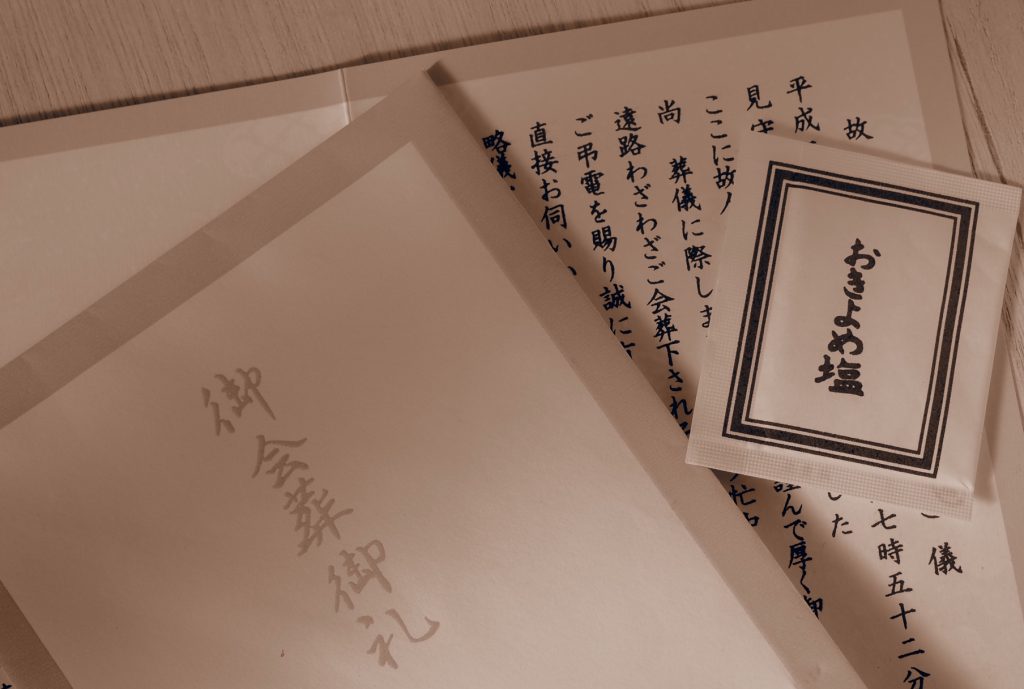 故
儀
平成
七時五十二分
見守
した
ここに故
尚 葬儀に際しま
謹んで厚く御
遠路わざわざご会葬下され
忙中
ご弔電を賜り誠に有
直接お伺い
略儀
おきよめ塩
御会葬御礼